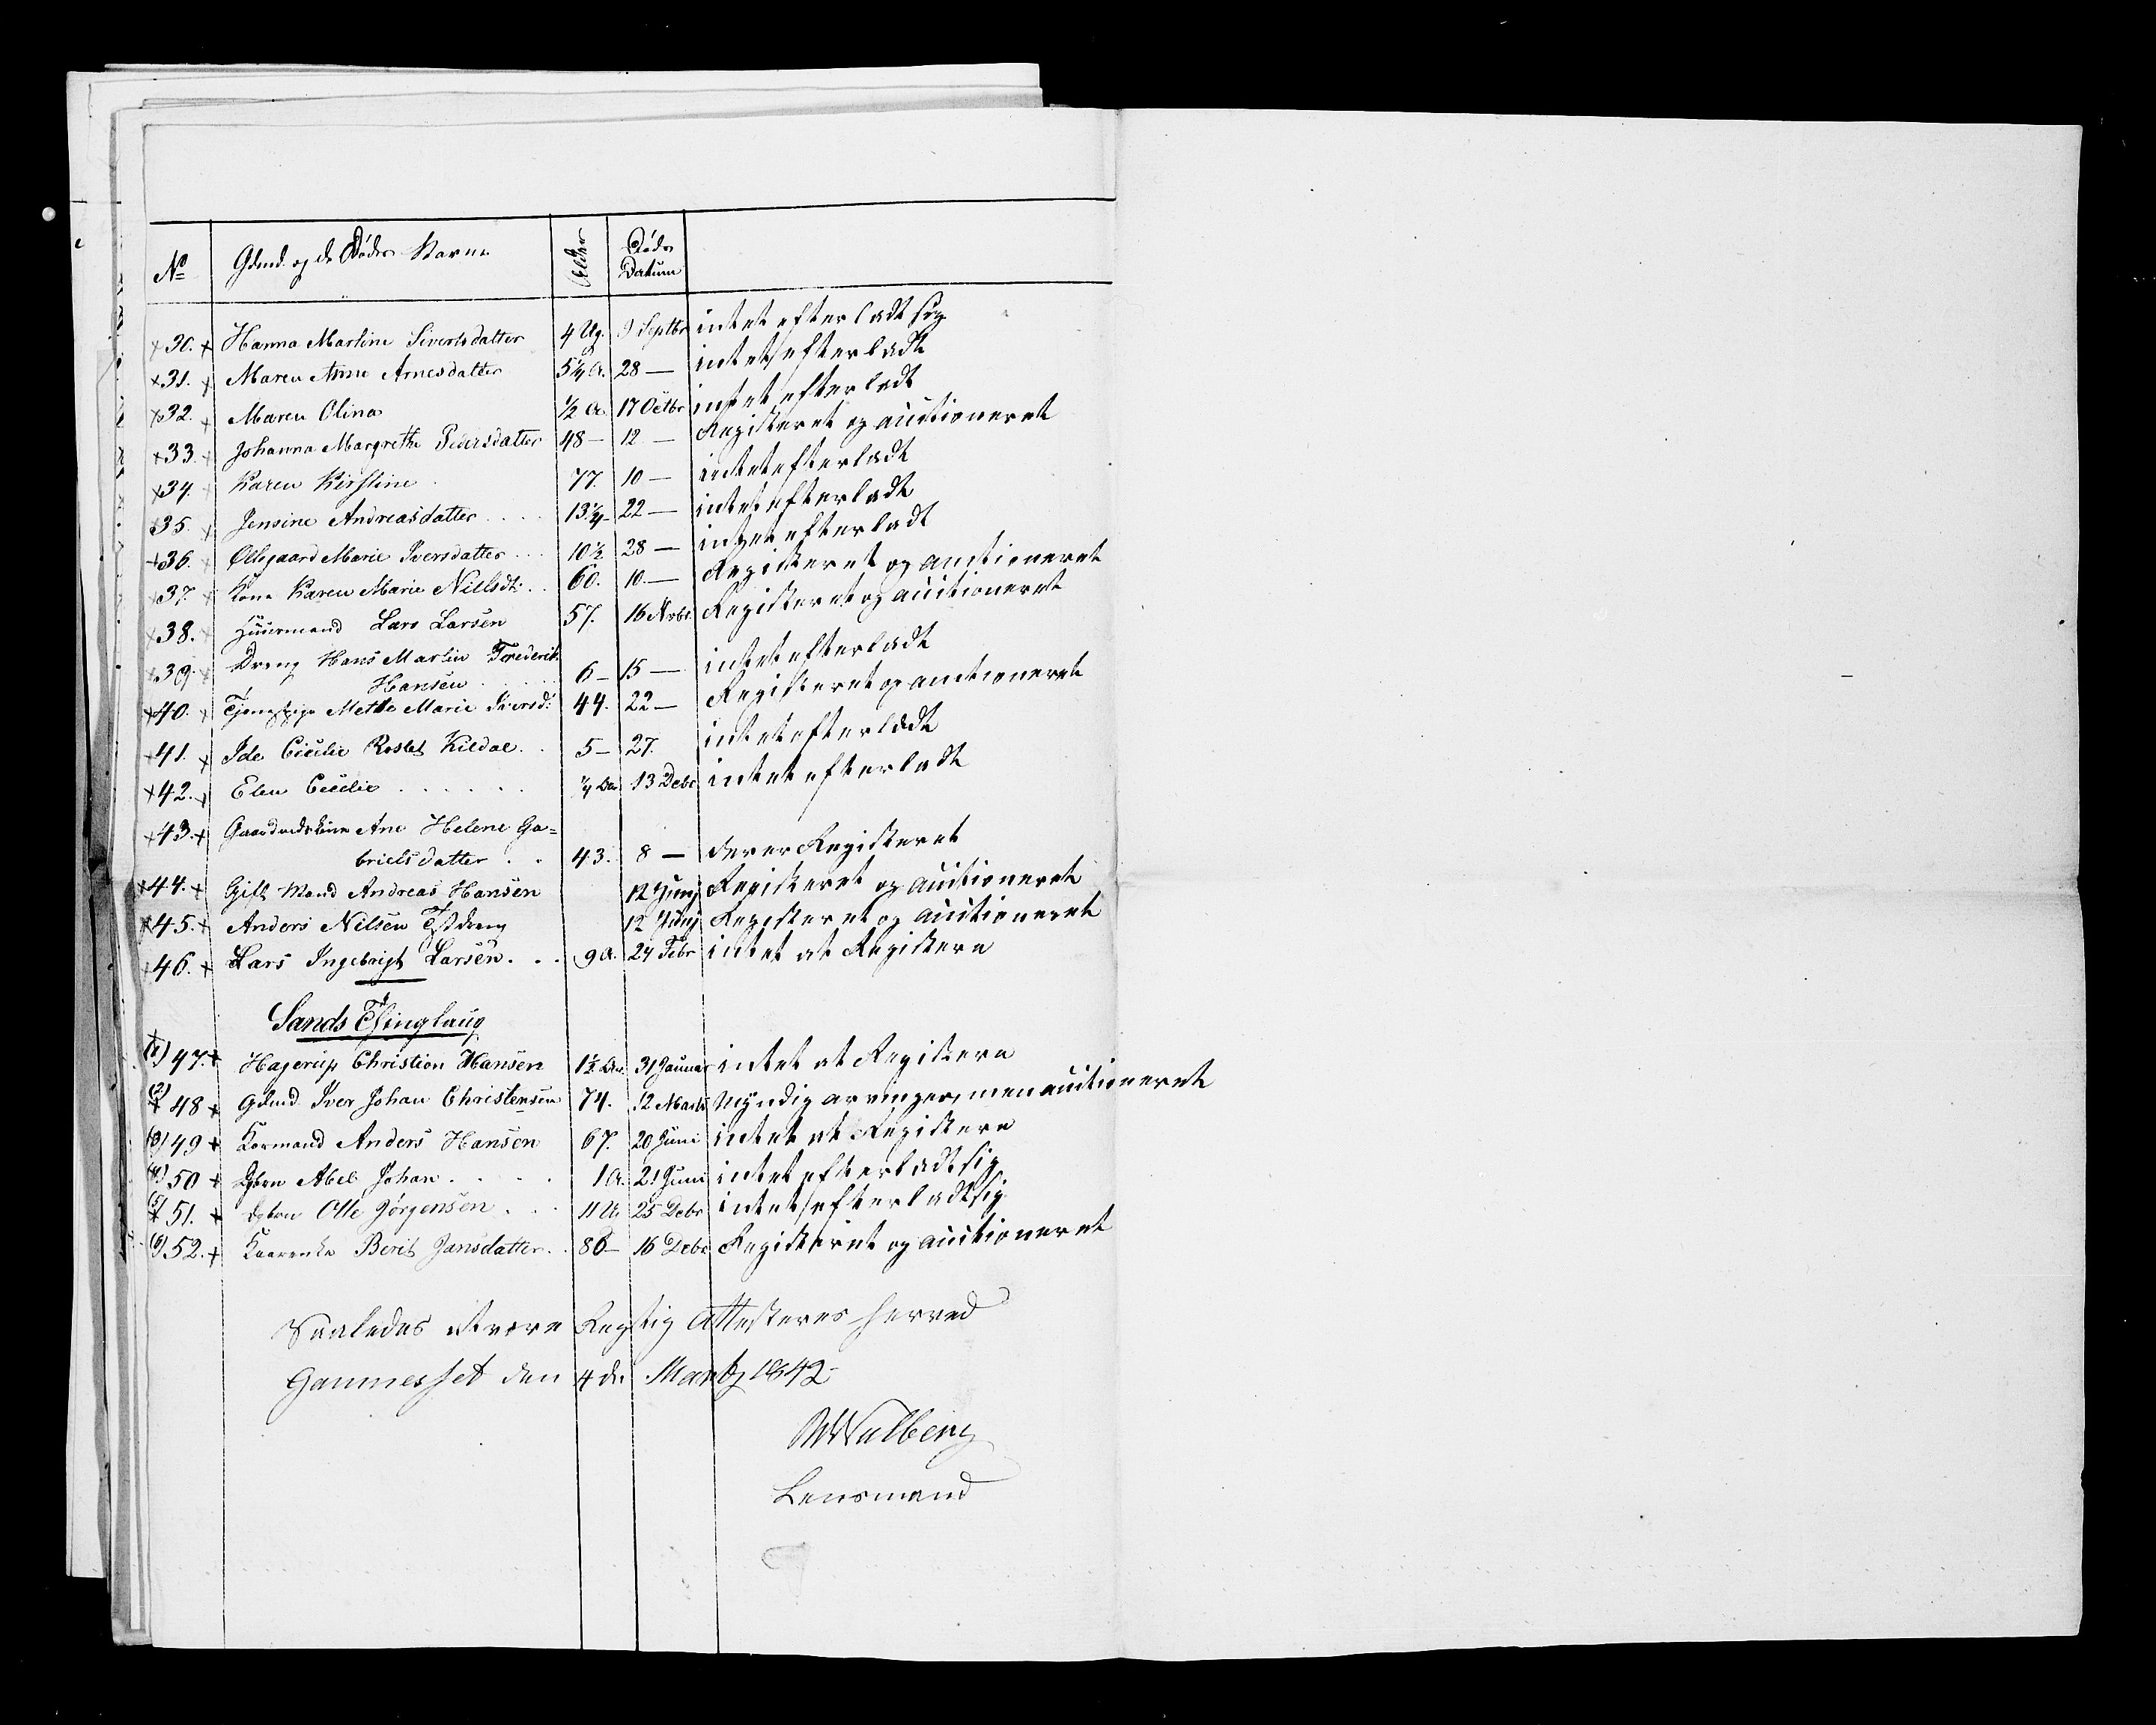 No Gdmd. og de Dødes Navne Alder Døds Datum
30. Hanna Martine Sivertsdatter 4 Ug. 9 Septbr intet efterladt sig
31. Maren Anne Arnesdatter 5 1/4 A. 28 — intet efterladt
32. Maren Olina 1/2 A. 17 Octbr intet efterladt
33. Johanna Margrethe Pedersdatter 48 — 12 — Registeret og auctioneret
34. Karen Kirstine 77. 10 — intet efterladt
35. Jensine Andreasdatter . . . 13 1/4 — 22 — intet efterladt
36. Ellegaard Marie Iversdatter . . . 10 1/2 28 — intet efterladt
37. Kone Karen Marie Nielsdt: . . 60. 10 — Registeret og auctioneret
38. Huusmand Lars Larsen 57. 16 Novbr. Registeret og auctioneret
39. Dreng Hans Martin Frederik
Hansen . . . 6 — 15 — intet efterladt
40. Tjenestpige Mette Marie Iversd: 44. 22 — Registeret og auctioneret
41. Ide Cicilie Kildal . . 5 — 27. intet efterladt
42. Elen Cicilie . . . . . . 13 Debr intet efterladt
43. Ane Helene Ga=
brielsdatter . . 43. 8 — der er Registeret
44. Gift Mand Andreas Hansen 12 Juny Registeret og auctioneret
45. Anders Nilsen 12 Juny Registeret og auctioneret
46. Lars Ingebrigt Larsen . . . 9 A. 24 Febr intet at Registere
Sands Thinglaug
(1) 47. Hagerup Christian Hansen 1 1/2 31 Januar intet at Registere
(2) 48 Gdmd. Iver Johan Christensen 74. 12 Marts Myndig arvinger, men auctioneret
(3) 49 Kaarmand Anders Hansen 67. 20 Juni intet at Registere
(4) 50 Dgbrn Abel Johan . . . . 1 A. 21 Juni intet efterladt sig
(5) 51. Dgbrn Olle Jørgensen . . . 11 U. 25 Debr intet efterladt sig
(6) 52. Kaarenke Berit Jansdatter . . 86 — 16 Debr Registeret og auctioneret
Saaledes at være Rigtig Attesteres herved
Gaunesset den 4de Martz 1842 —
Walberg
Lensmand